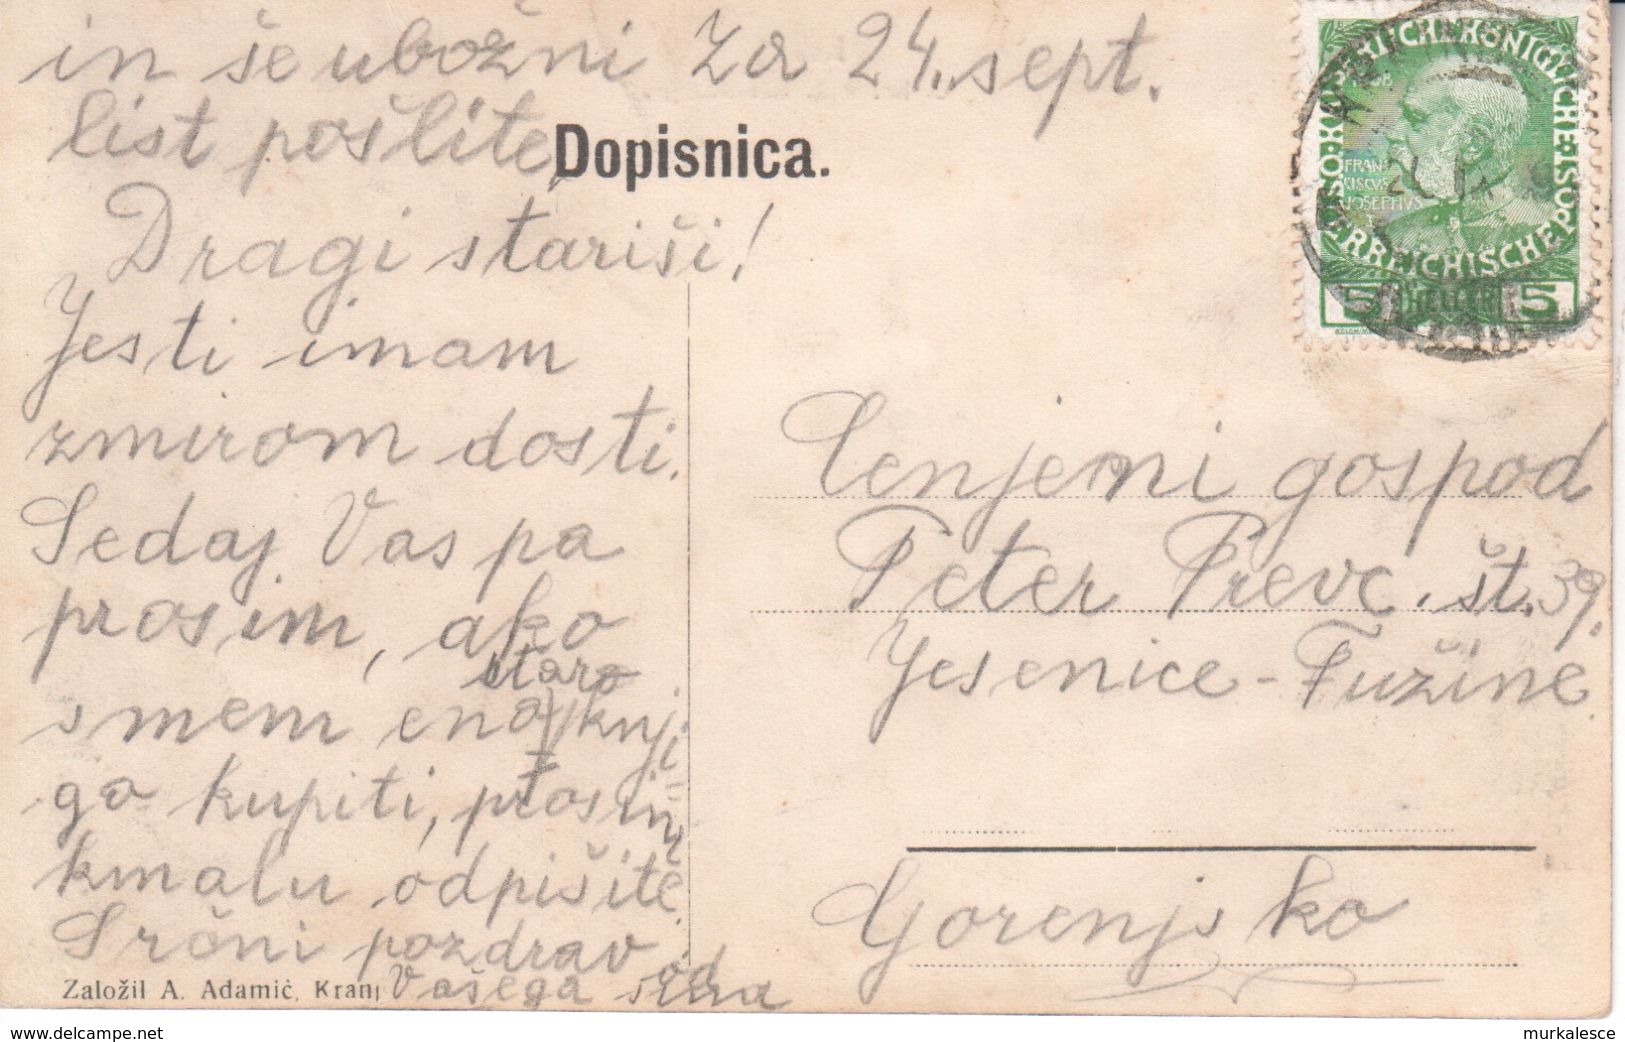 in še ubožni za 24. sept.
list pošlite,
Dopisnica.
Dragi stariši!
Jesti imam
zmirom dosti.
Sedaj Vas pa
prosim, ako
staro
smem eno knji
go kupiti, prosim
kmalu odpišite
Srčni pozdrav od
Vašega sina
Založil A. Adamič, Kranj
Cenjeni gospod
Peter Prevc. št. 39.
Jesenice - Fužine
Gorenjsko
KAISERL. KÖNIGLICHE POST
ÖSTERREICHISCHE
FRAN
CISCVS
IOSEPHVS
I
5 HELLER 5
delcampe.net
murkalesce